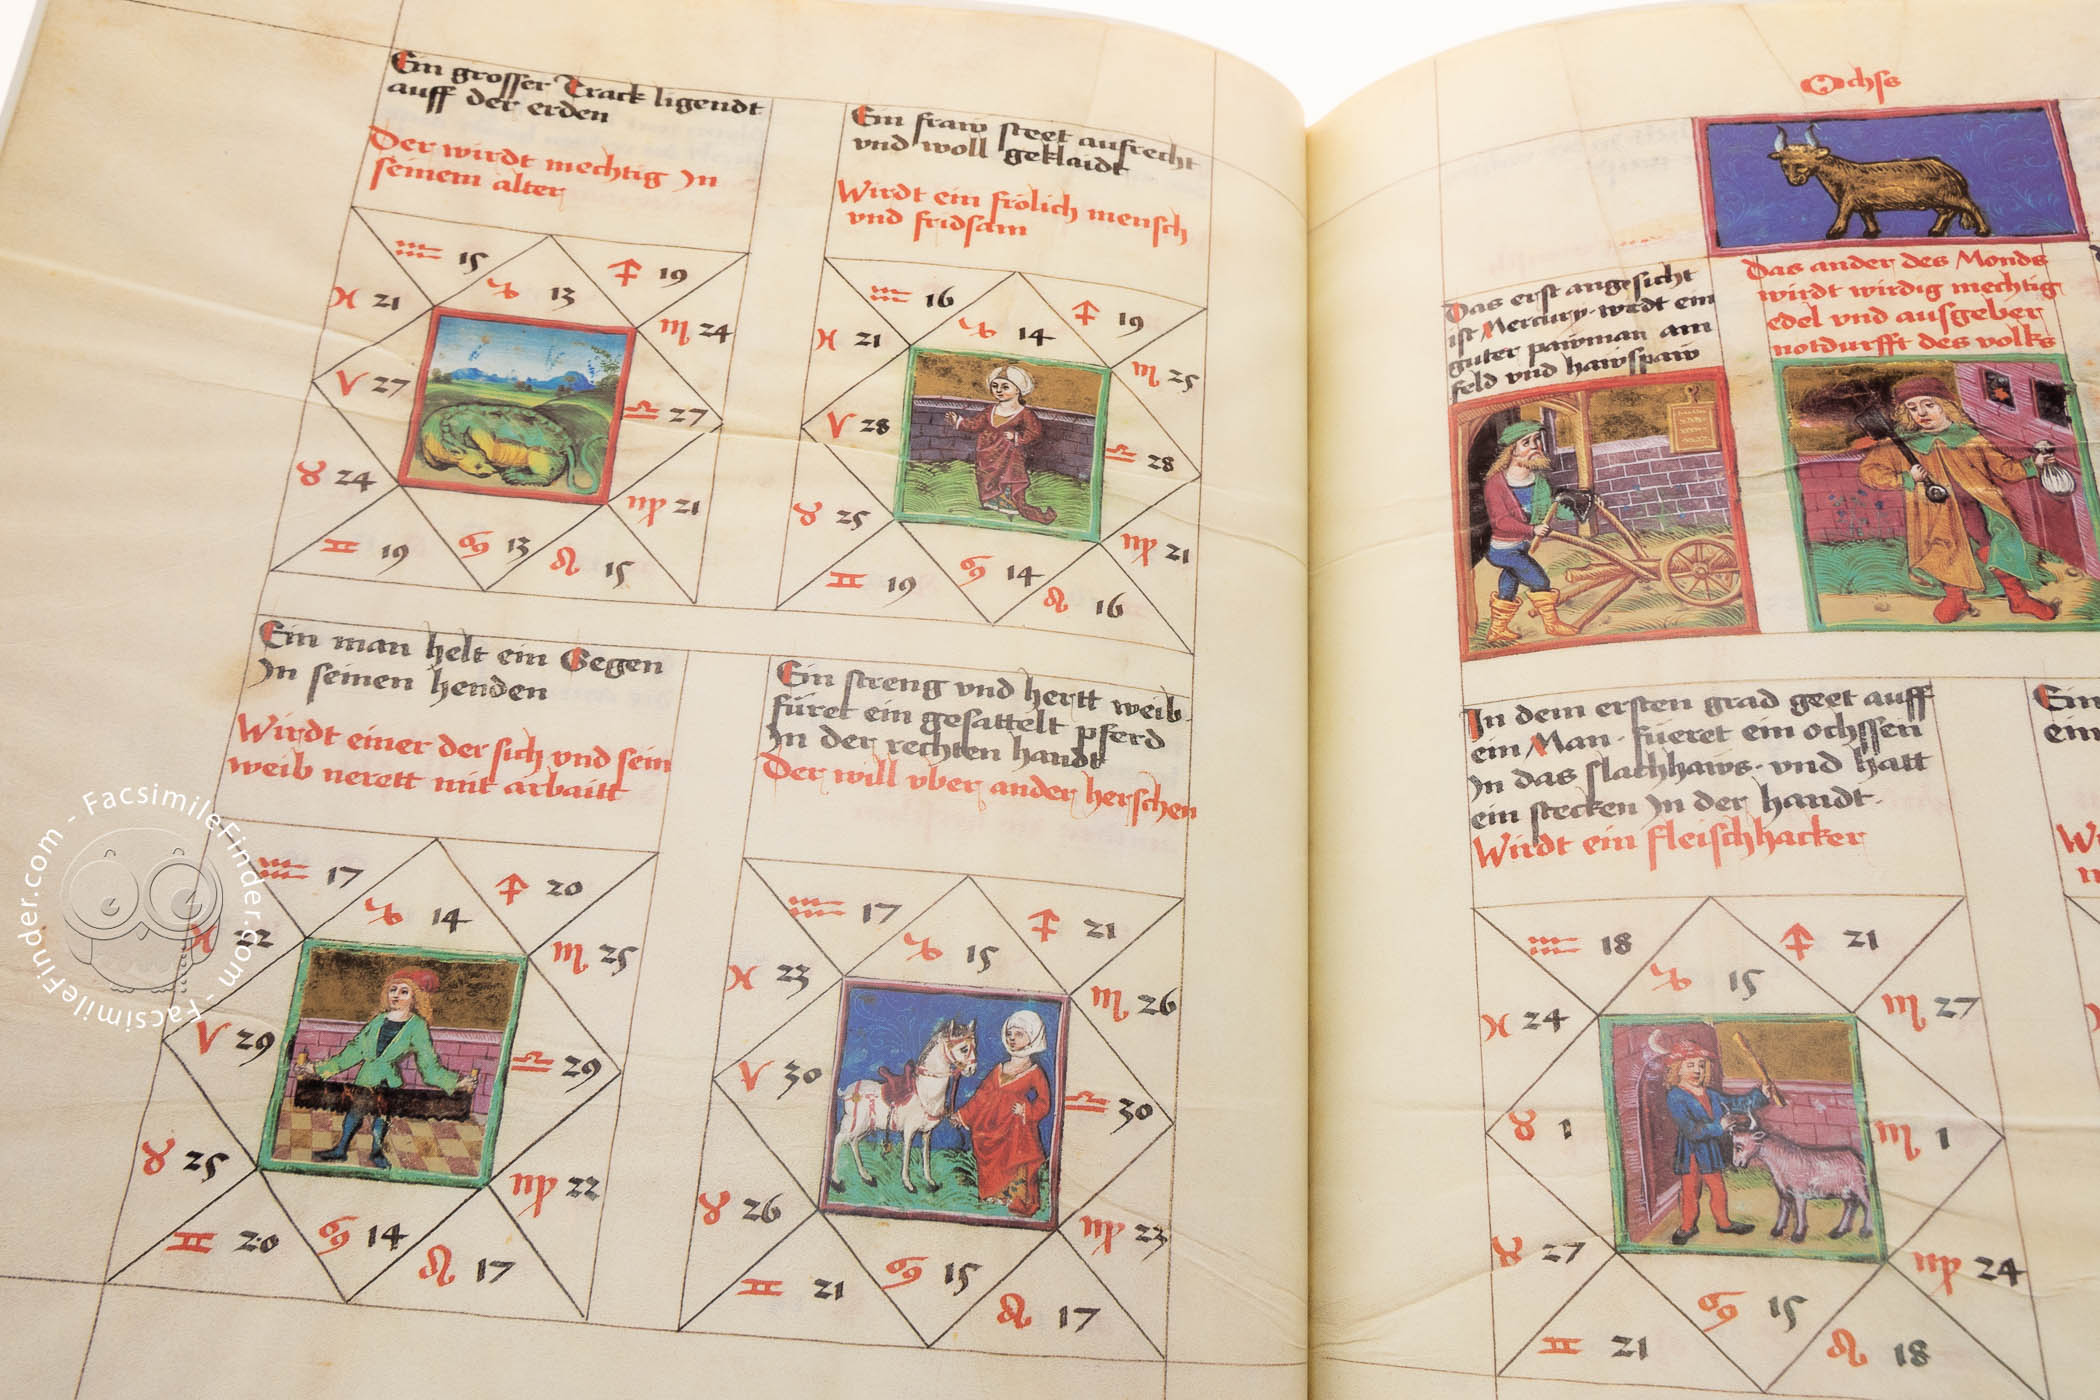 Ein grosser Track ligendt
auff der erden
Der wirdt mechtig In
seinem alter
♒ 15
♑ 13
♐ 19
♓ 21
♏ 24
♈ 27
♎ 27
♉ 24
♍ 21
♊ 19
♋ 13
♌ 15
Ein fraw steet aufrecht
vnd woll geklaidt
Wirdt ein frölich mensch
vnd fridsam
♒ 16
♑ 14
♐ 19
♓ 21
♏ 25
♈ 28
♎ 28
♉ 25
♍ 21
♊ 19
♋ 14
♌ 16
Ein man helt ein Segen
In seinen henden
Wirdt einer der sich vnd sein
weib nerett mit arbaitt
♒ 17
♑ 14
♐ 20
♓ 22
♏ 25
♈ 29
♎ 29
♉ 25
♍ 22
♊ 20
♋ 14
♌ 17
Ein streng vnd hertt weib
füret ein gesattelt pferd
In der rechten handt
Der will vber ander herschen
♒ 17
♑ 15
♐ 21
♓ 23
♏ 26
♈ 30
♎ 30
♉ 26
♍ 23
♊ 21
♋ 15
♌ 17
Ochss
Das erst angesicht
ist Mercury wirdt ein
guter pawman am
feld vnd hawspaw
Das ander des Monds
wirdt wirdig mechtig
edel vnd aufgeber
notdurfft des volks
In dem ersten grad geet auff
ein Man fueret ein ochssen
In das slachhaws vnd hatt
ein stecken In der handt
Wirdt ein fleischhacker
♒ 18
♑ 15
♐ 21
♓ 24
♏ 27
♉ 1
♏ 1
♉ 27
♍ 24
♊ 21
♋ 15
♌ 18
Ein
ein
FacsimileFinder.com - FacsimileFinder.com - FacsimileFinder.com